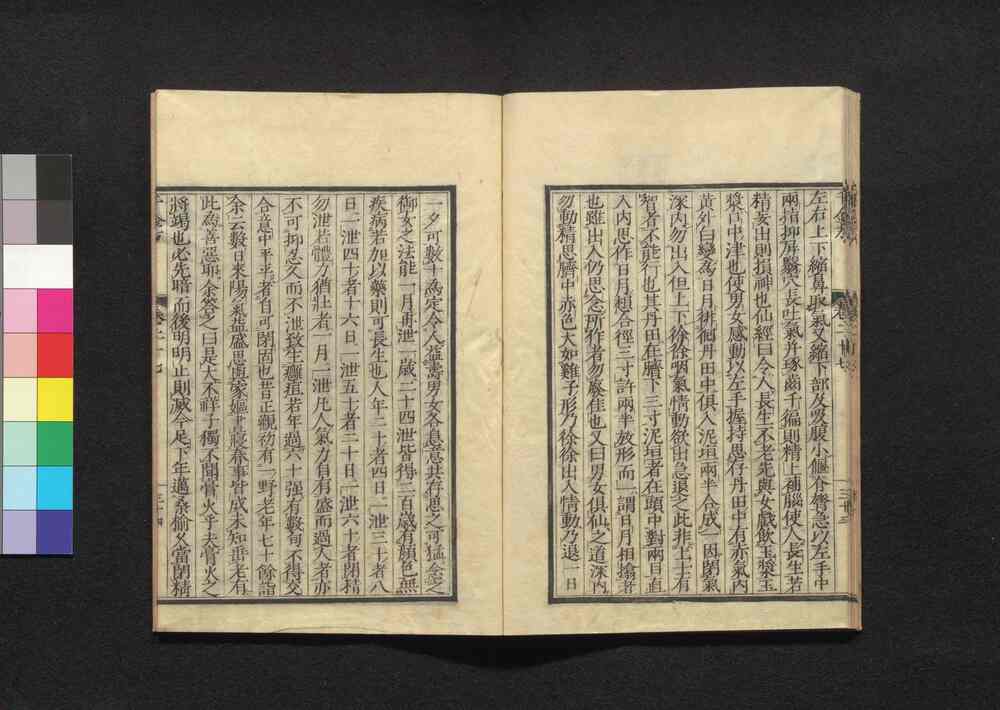 左右上下縮鼻取氣又縮下部及吸腹小偃脊膂急以左手中
兩指抑屏翳穴長吐氣并琢齒千徧則精上補腦使人長生若
精妄出則損神也仙經曰令人長生不老先與女戲飲玉漿玉
漿口中津也使男女感動以左手握持思存丹田中有赤氣內
黃外白變為日月徘徊丹田中俱入泥垣兩半合成一因閉氣
深內勿出入但上下徐徐咽氣情動欲出急退之此非上士有
智者不能行也其丹田在臍下三寸泥垣者在頭中對兩目直
入內思作日月想合徑三寸許兩半放形而一謂日月相擒者
也雖出入仍思念所作者勿廢佳也又曰男女俱仙之道深內
勿動精思臍中赤色大如雞子形乃徐徐出入情動乃退一日
一夕可數十為定令人益壽男女各息意共存思之可猛念之
御女之法能一月再泄一歲二十四泄皆得二百歲有顏色無
疾病若加以藥則可長生也人年二十者四日一泄三十者八
日一泄四十者十六日一泄五十者二十日一泄六十者閉精
勿泄若體力猶壯者一月一泄凡人氣力自有盛而過人者亦
不可抑忍久而不泄致生癰疽若年過六十强有數旬不得交
合意中平平者自可閉固也昔正觀初有一野老年七十餘詣
余云數日來陽氣益盛思與家嫗晝寢春事皆成未知垂老有
此為善惡耶余答之曰是大不祥子獨不聞膏火乎夫膏火之
將竭也必先暗而後明明止則滅今足下年邁桑榆久當閉精